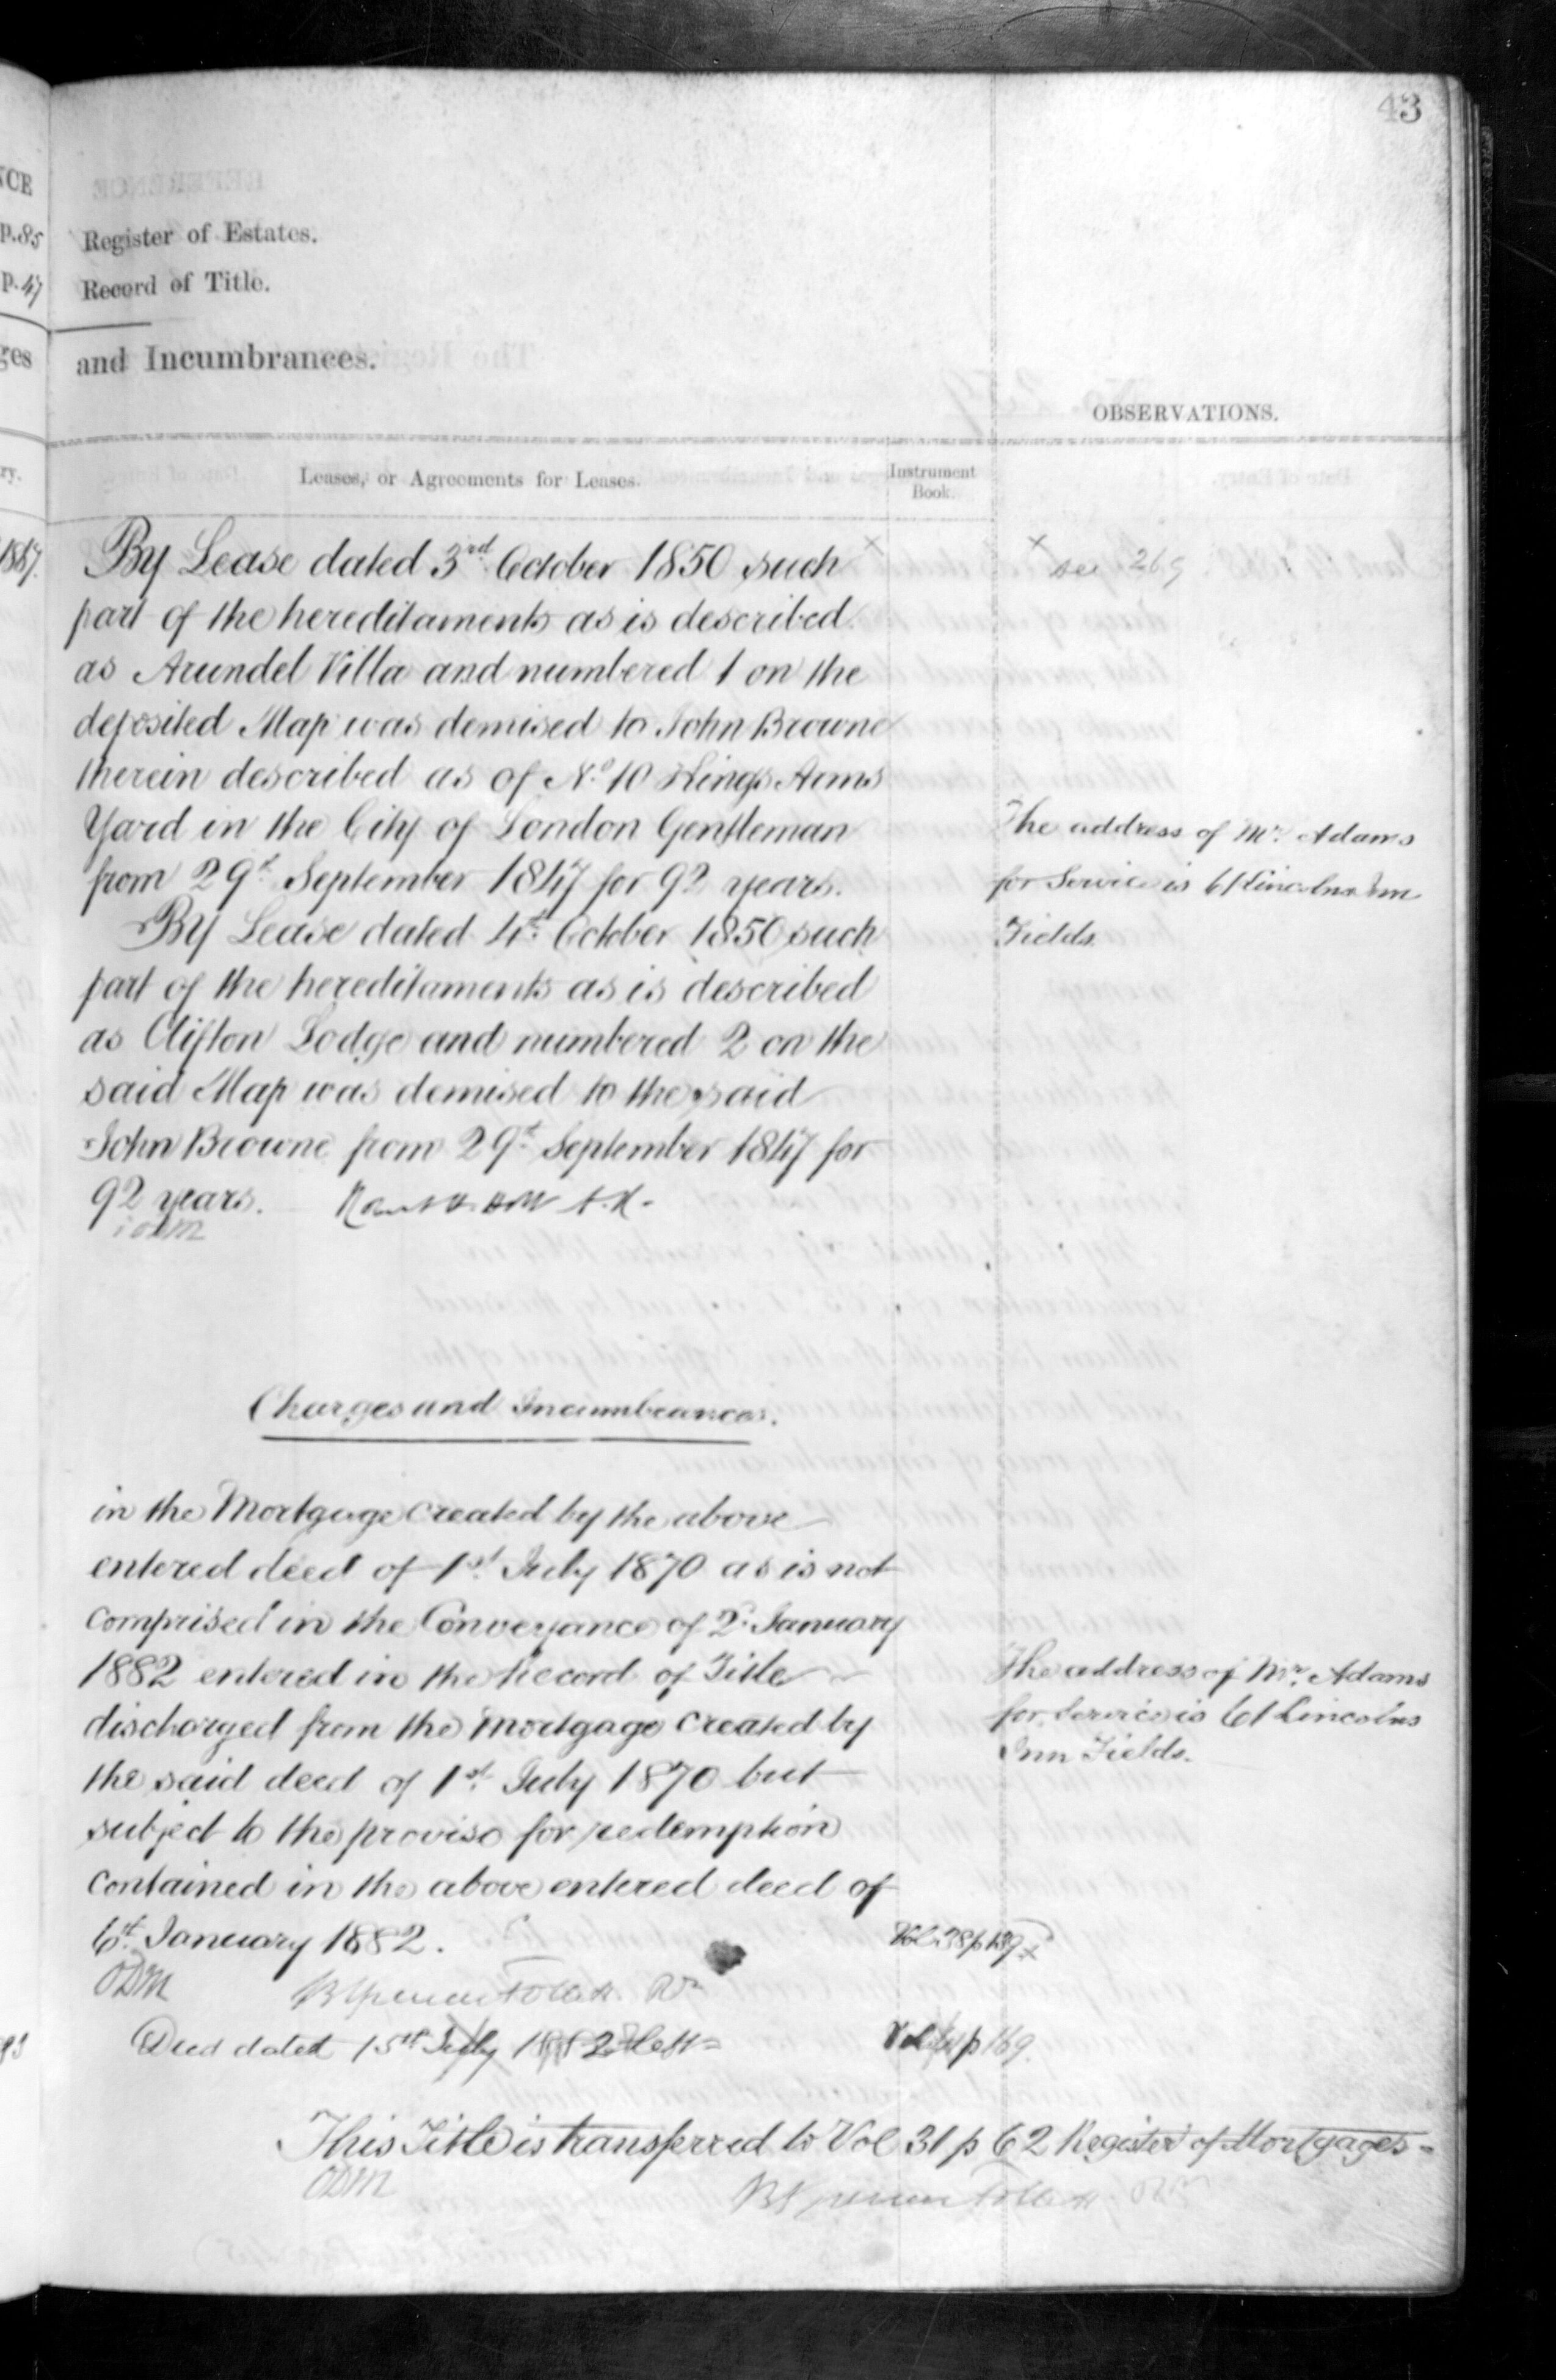 43
Register of Estates.
Record of Title.
and Incumbrances.
OBSERVATIONS.
Leases, or Agreements for Leases.
Instrument
Book.
By Lease dated 3rd October 1850 such ×
part of the hereditaments as is described
as Arundel Villa and numbered 1 on the
deposited Map was demised to John Browne
therein described as of No. 10 Kings Arms
Yard in the City of London Gentleman
from 29th September 1847 for 92 years.
By Lease dated 4th October 1850 such
part of the hereditaments as is described
as Clifton Lodge and numbered 2 on the
said Map was demised to the said
John Browne from 29th September 1847 for
92 years.
× see 269
The address of Mr. Adams
for Service is 61 Lincolns Inn
Fields.
Charges and Incumbrances.
in the Mortgage created by the above
entered deed of 1st. July 1870 as is not
comprised in the Conveyance of 2d. January
1882 entered in the Record of Title
discharged from the Mortgage created by
the said deed of 1st. July 1870 but
subject to the proviso for redemption
contained in the above entered deed of
6th. January 1882.
ODM
The address of Mr. Adams
for Service is 61 Lincolns
Inn Fields.
Deed dated 15th July 1882
p 169.
This Title is transferred to Vol 31 p 62 Register of Mortgages
ODM